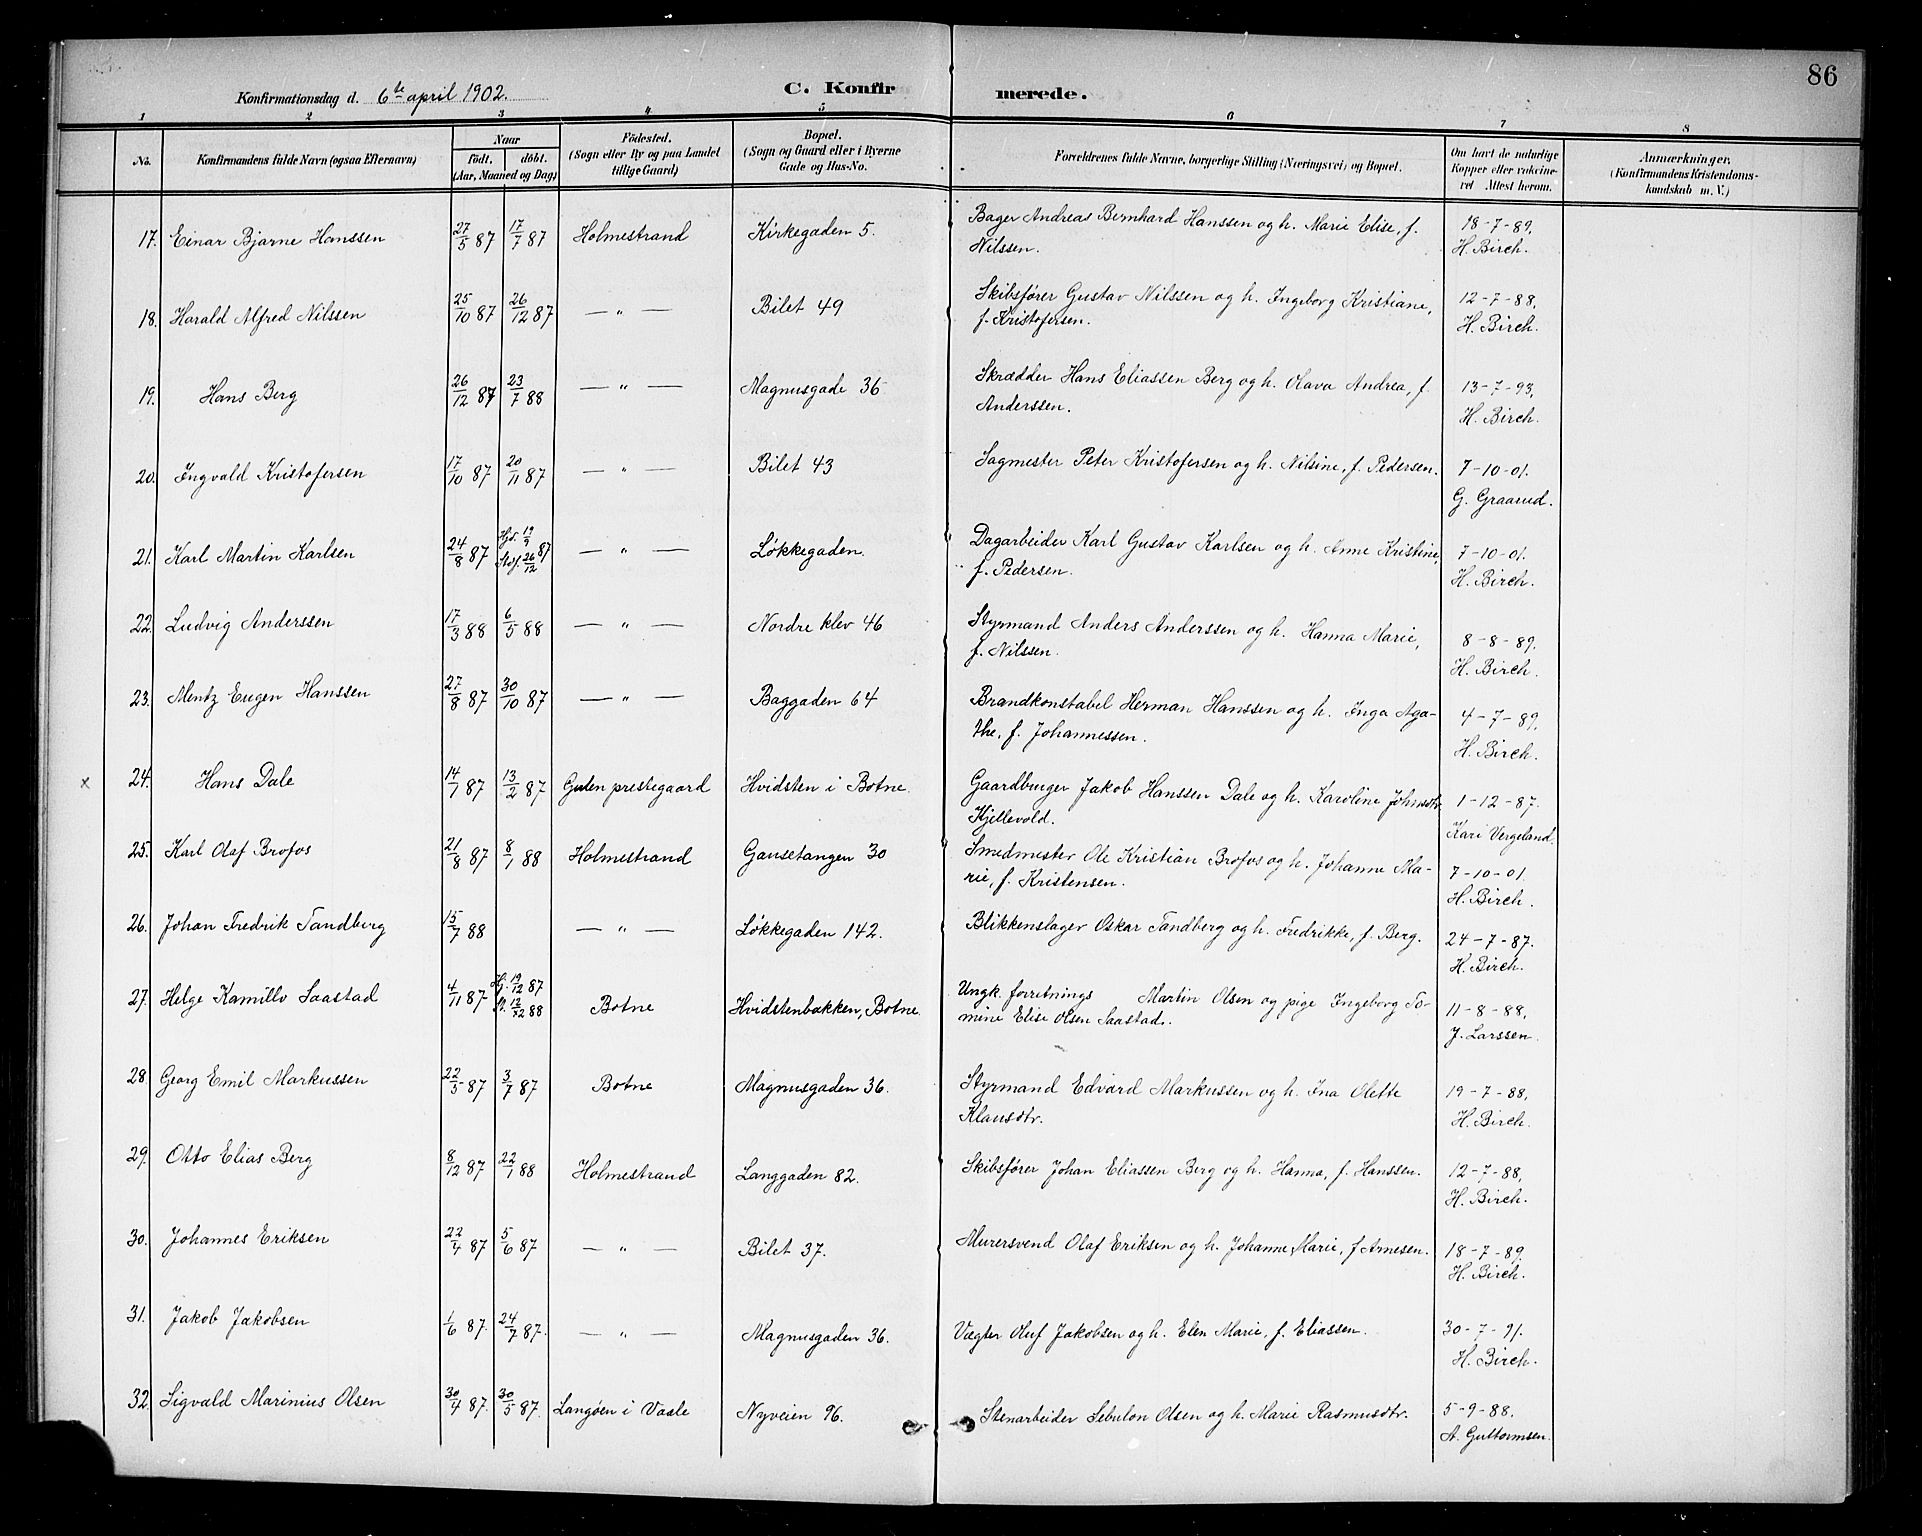 86
Konfirmationsdag d. 6te april 1902.
C. Konfirmerede.
1 2 3 4 5 6 7 8
No.
Konfirmandens fulde Navn (ogsaa Efternavn)
Naar
født, døbt.
(Aar, Maaned og Dag)
Fødested.
(Sogn eller By og paa Landet
tillige Gaard)
Bopæl.
(Sogn og Gaard eller i Byerne
Gade og Hus-No.
Forældrenes fulde Navne, borgerlige Stilling (Næringsvei) og Bopæl.
Om havt de naturlige
Kopper eller vakcine-
ret Attest herom.
Anmærkninger.
(Konfirmandens Kristendoms-
kundskab m. V.)
17. Einar Bjarne Hanssen 27/5 87 17/7 87 Holmestrand Kirkegaden 5. Bager Andreas Bernhard Hanssen og h. Marie Elise, f. 18-7-89,
Nilssen. H. Birch.
18. Harald Alfred Nilssen 25/10 87 26/12 87 — " — Bilet 49 Skibsfører Gustav Nilssen og h. Ingeborg Kristiane, 12-7-88,
f. Kristofersen. H. Birch.
19. Hans Berg 26/12 87 23/7 88 — " — Magnusgade 36 Skrædder Hans Eliassen Berg og h. Olava Andrea, f. 13-7-93,
Anderssen. H. Birch.
20. Ingvald Kristofersen 17/10 87 20/11 87 — " — Bilet 43 Sagmester Peter Kristofersen og h. Nilsine, f. Pedersen. 7-10-01.
G. Graarud.
21. Karl Martin Karlsen 24/8 87 Hjd. 19/9 Stdf. 26/12 87 — " — Løkkegaden. Dagarbeider Karl Gustav Karlsen og h. Anne Kristine, 7-10-01.
f. Pedersen. H. Birch.
22. Ludvig Anderssen 17/3 88 6/5 88 — " — Nordre klev 46 Styrmand Anders Anderssen og h. Hanna Marie, 8-8-89.
f. Nilssen. H. Birch.
23. Mentz Eugen Hanssen 27/8 87 30/10 87 — " — Baggaden 64 Brandkonstabel Herman Hanssen og h. Inga Aga- 4-7-89,
the, f. Johannessen. H. Birch.
x 24. Hans Dale 14/1 87 13/2 87 Gulen prestegaard Hvidsten i Botne. Gaardbruger Jakob Hanssen Dale og h. Karoline Johnsdtr. 1-12-87.
Kjellevold. Kari Vergeland.
25. Karl Olaf Brofos 21/8 87 8/1 88 Holmestrand Gausetangen 30 Smedmester Ole Kristian Brofos og h. Johanne Ma- 7-10-01.
rie, f. Kristensen. H. Birch.
26. Johan Fredrik Sandberg 15/7 88 — " — Løkkegaden 142. Blikkenslager Oskar Sandberg og h. Fredrikke, f. Berg. 24-7-87.
H. Birch.
27. Helge Kamillo Saastad 4/11 87 Hj. 19/12 87 St. 12/2 88 Botne Hvidstenbakken, Botne. Ungk. forretnings Martin Olsen og pige Ingeborg To- 11-8-88,
mine Elise Olsen Saastad. J. Larssen.
28. Georg Emil Markussen 22/5 87 3/7 87 Botne Magnusgaden 36. Styrmand Edvard Markussen og h. Ina Olette 19-7-88,
Klausdtr. H. Birch.
29. Otto Elias Berg 8/12 87 22/1 88 Holmestrand Langgaden 82. Skibsfører Johan Eliassen Berg og h. Hanna, f. Hanssen. 12-7-88,
H. Birch.
30. Johannes Eriksen 22/4 87 5/6 87 — " — Bilet 37. Murersvend Olaf Eriksen og h. Johanne Marie, f. Arnesen. 18-7-89.
H. Birch.
31. Jakob Jakobsen 1/6 87. 24/7 87. — " — Magnusgaden 36. Vægter Oluf Jakobsen og h. Elen Marie, f. Eliassen. 30-7-91.
H. Birch.
32. Sigvald Marinius Olsen 30/4 87. 30/5 87. Langøen i Vaale Nyveien 96. Stenarbeider Sebulon Olsen og h. Marie Rasmusdtr. 5-9-88.
A. Guttormsen.